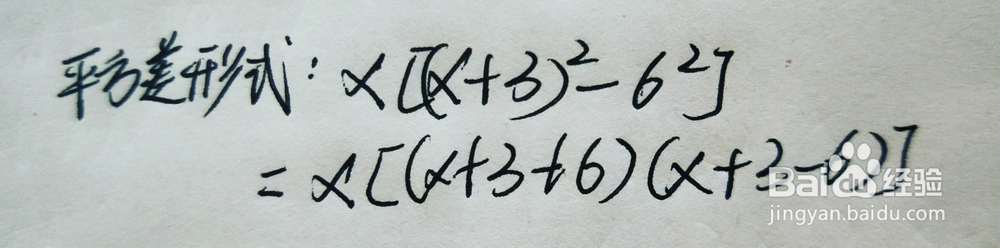 平方差形式: x[(x+3)²-6²]
=x[(x+3+6)(x+3-6)]
Baidu经验
jingyan.baidu.com